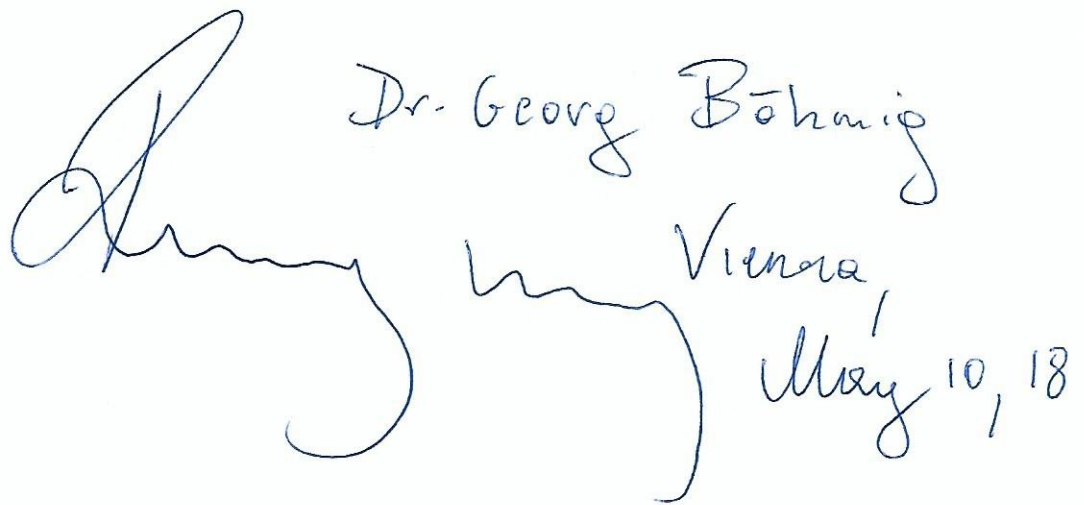 Dr. Georg Böhmig
Vienna,
May 10, 18